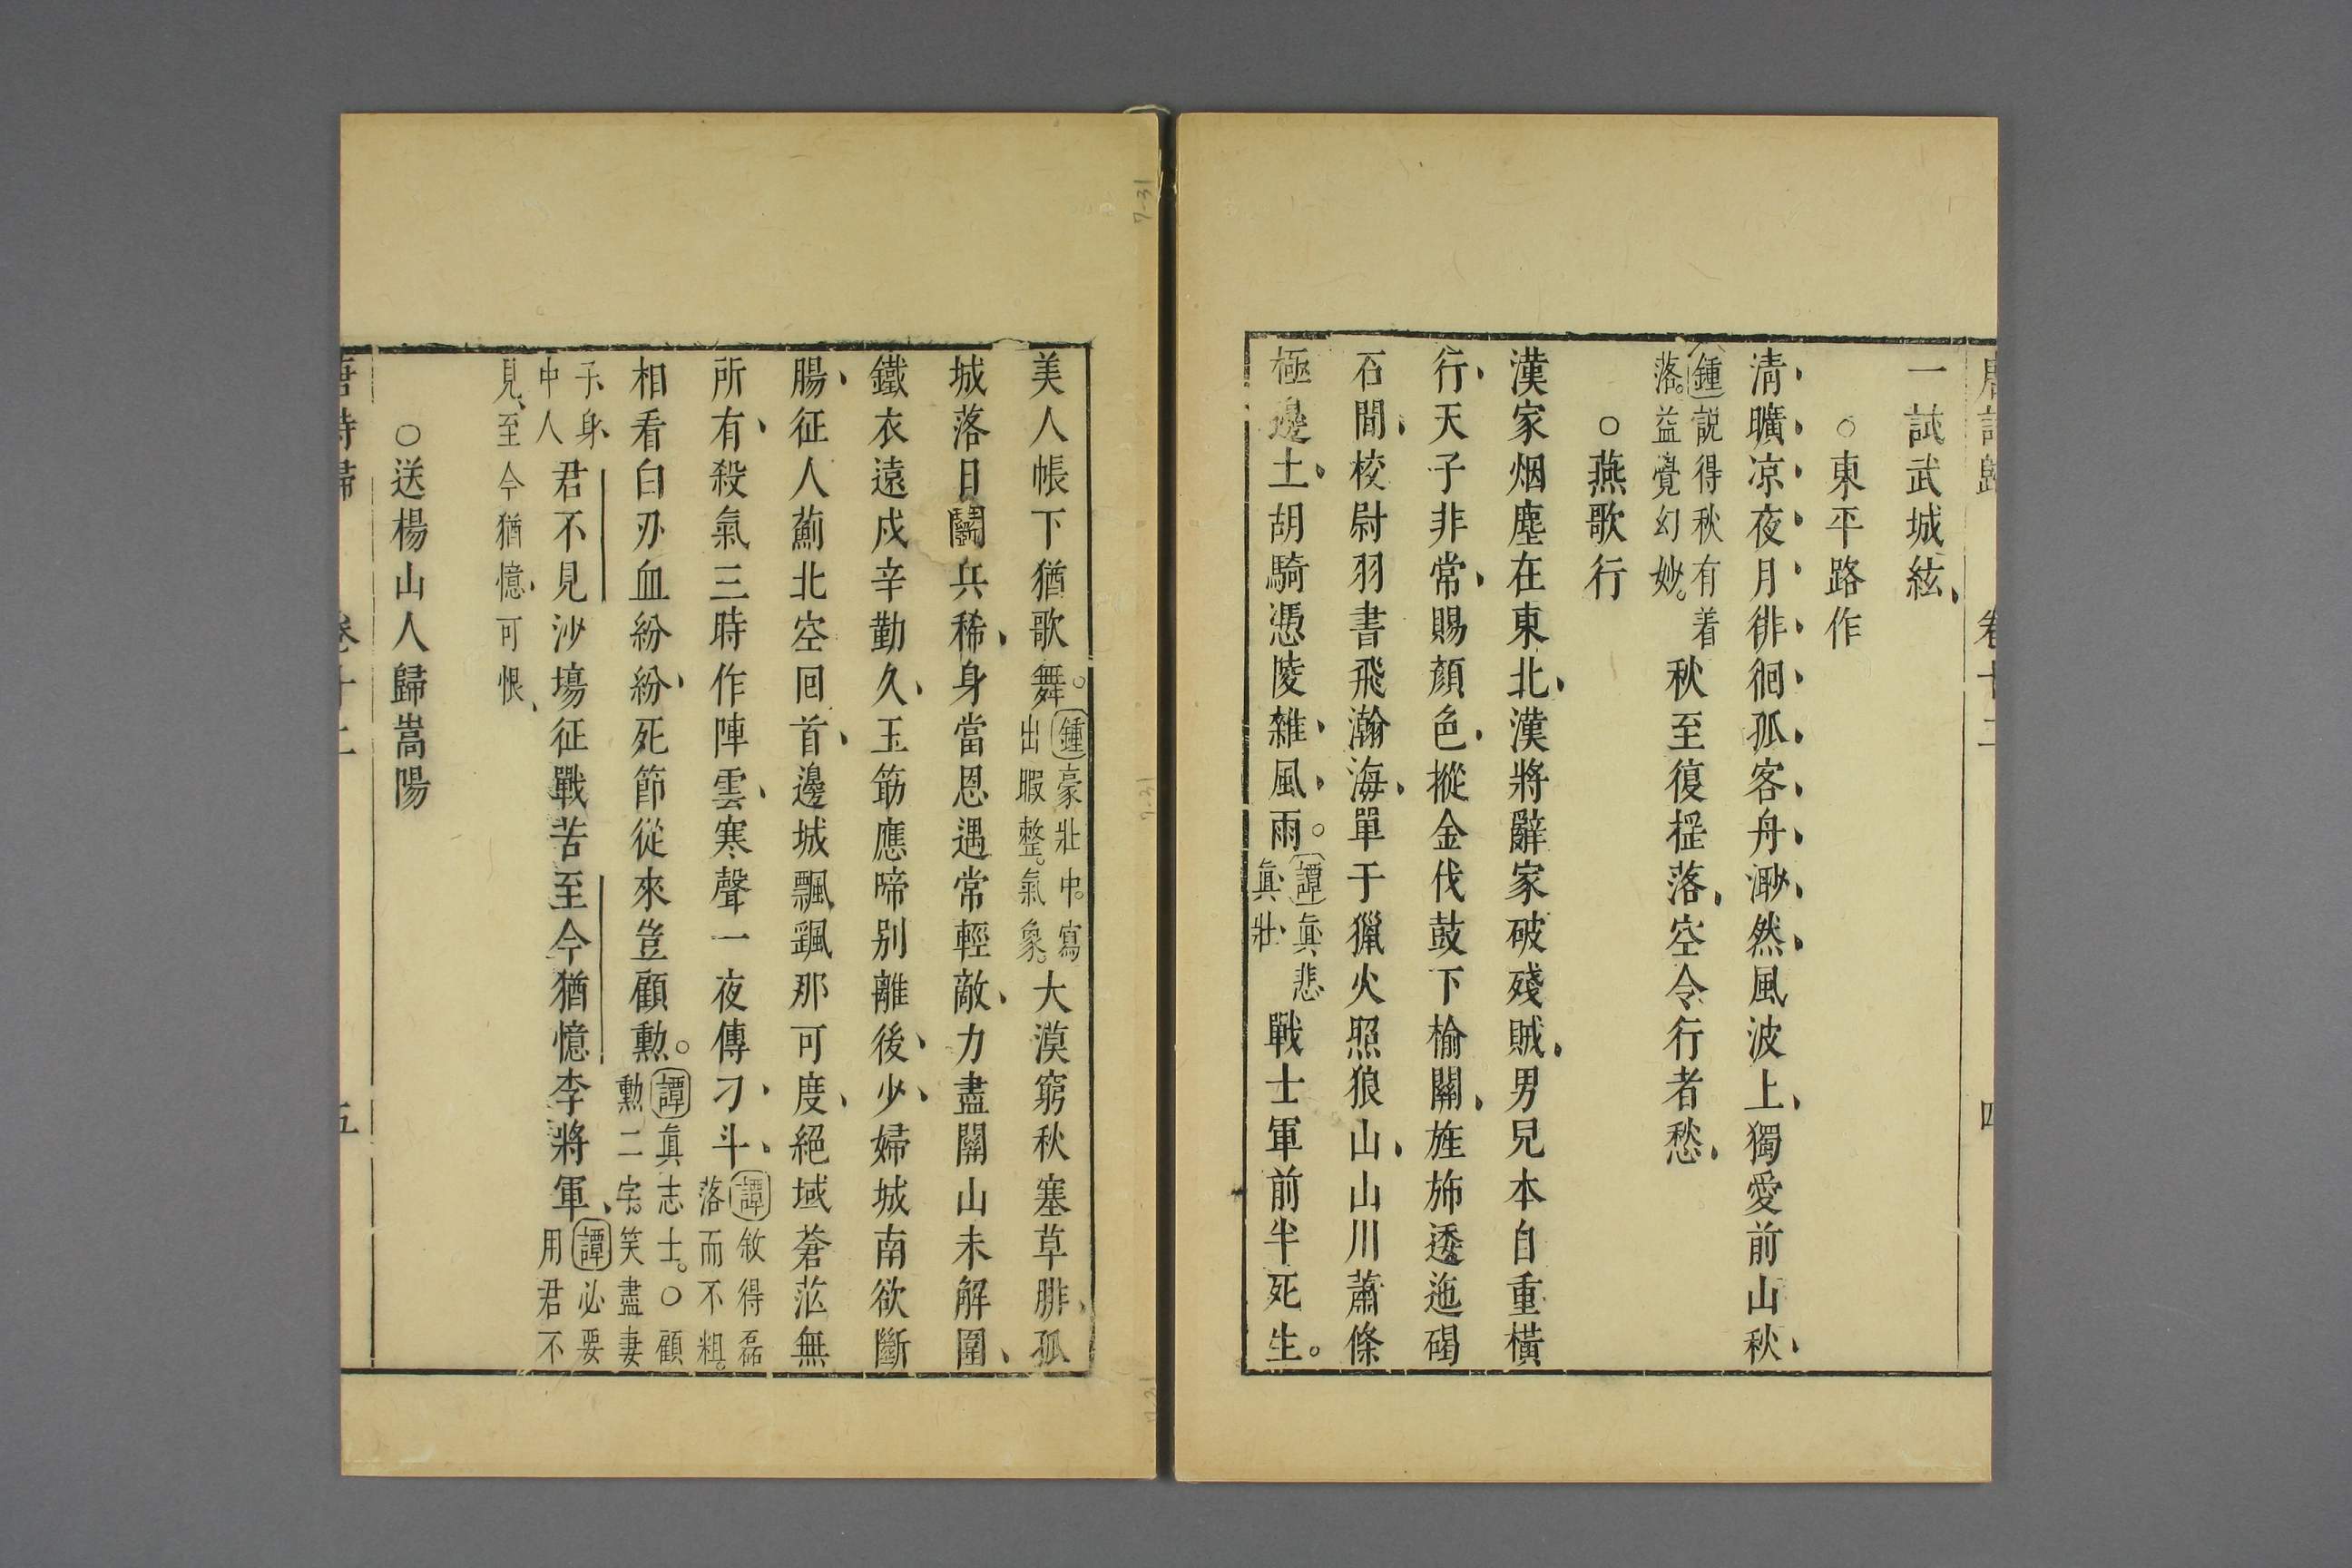 唐詩歸 卷十二 四
一試武城絃
○東平路作
清曠凉夜月徘徊孤客舟渺然風波上獨愛前山秋
鍾說得秋有着落益覺幻妙秋至復搖落空令行者愁
○燕歌行
漢家烟塵在東北漢將辭家破殘賊男兒本自重橫
行天子非常賜顏色摐金伐鼓下榆關旌斾逶迤碣
石間校尉羽書飛瀚海單于獵火照狼山山川蕭條
極邊土胡騎憑陵雜風雨譚眞悲眞壯戰士軍前半死生
美人帳下猶歌舞鍾豪壯中寫出暇整氣象大漠窮秋塞草腓孤
城落日鬭兵稀身當恩遇常輕敵力盡關山未解圍
鐵衣遠戍辛勤久玉筯應啼別離後少婦城南欲斷
腸征人薊北空回首邊城飄颻那可度絕域蒼茫無
所有殺氣三時作陣雲寒聲一夜傳刁斗譚敘得磊落而不粗
相看白刃血紛紛死節從來豈顧勲譚眞志士○顧勲二字笑盡妻
子身中人君不見沙塲征戰苦至今猶憶李將軍譚必要用君不
見至今猶憶可恨
○送楊山人歸嵩陽
唐詩歸 卷十二 五